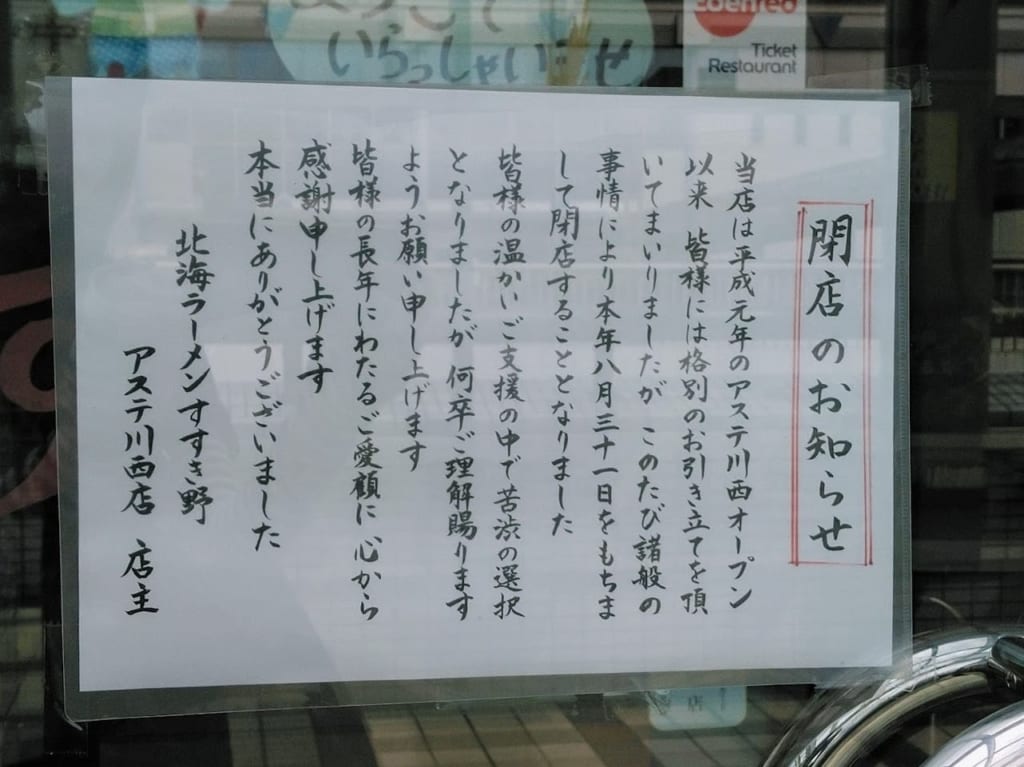 いらっしゃいませ
Edenred
Ticket
Restaurant
閉店のお知らせ
当店は平成元年のアステ川西オープン
以来 皆様には格別のお引き立てを頂
いてまいりましたが このたび諸般の
事情により本年八月三十一日をもちま
して閉店することとなりました
皆様の温かいご支援の中で苦渋の選択
となりましたが 何卒ご理解賜ります
ようお願い申し上げます
皆様の長年にわたるご愛顧に 心から
感謝申し上げます
本当にありがとうございました
北海ラーメンすすき野
アステ川西店 店主
店